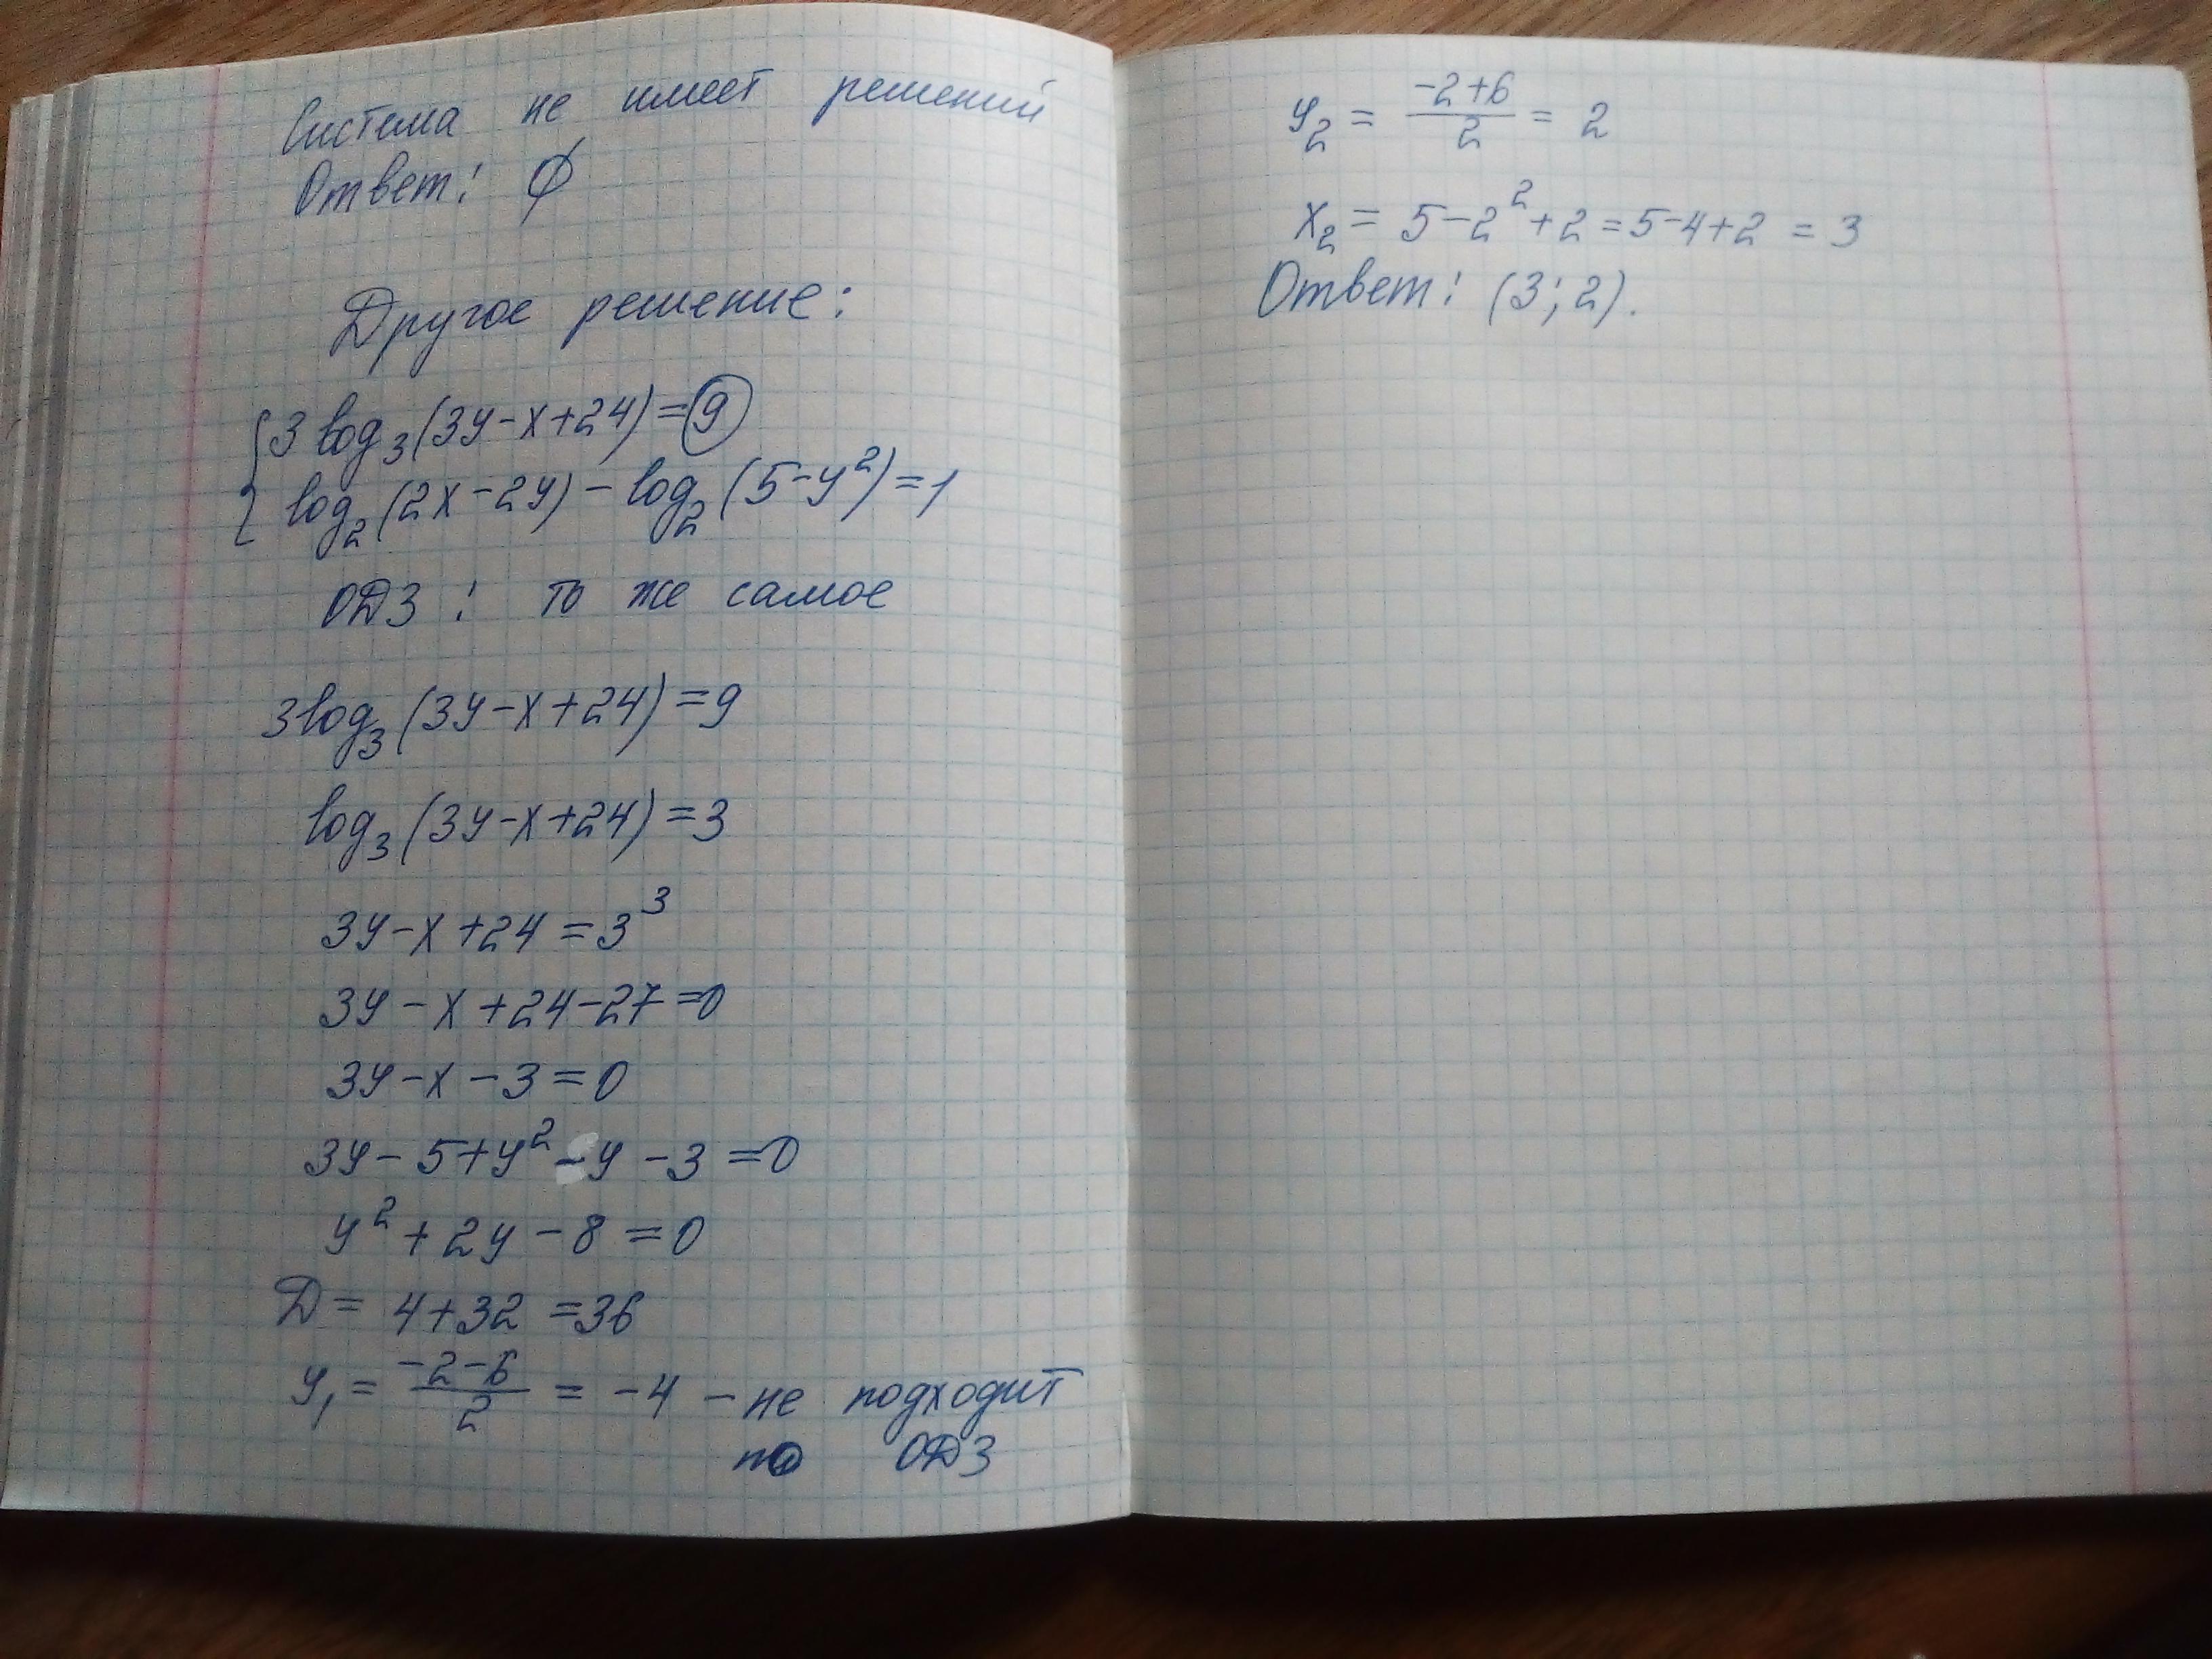 Система не имеет решений
Ответ: ∅
Другое решение:
{ 3 log₃(3y-x+24)=9
log₂(2x-2y)-log₂(5-y²)=1
ОДЗ: то же самое
3log₃(3y-x+24)=9
log₃(3y-x+24)=3
3y-x+24=3³
3y-x+24-27=0
3y-x-3=0
3y-5+y²-y-3=0
y²+2y-8=0
Д= 4+32=36
y₁= (-2-6)/2 = -4 - не подходит
по ОДЗ
y₂= (-2+6)/2 = 2
x₂= 5-2²+2=5-4+2=3
Ответ: (3;2).